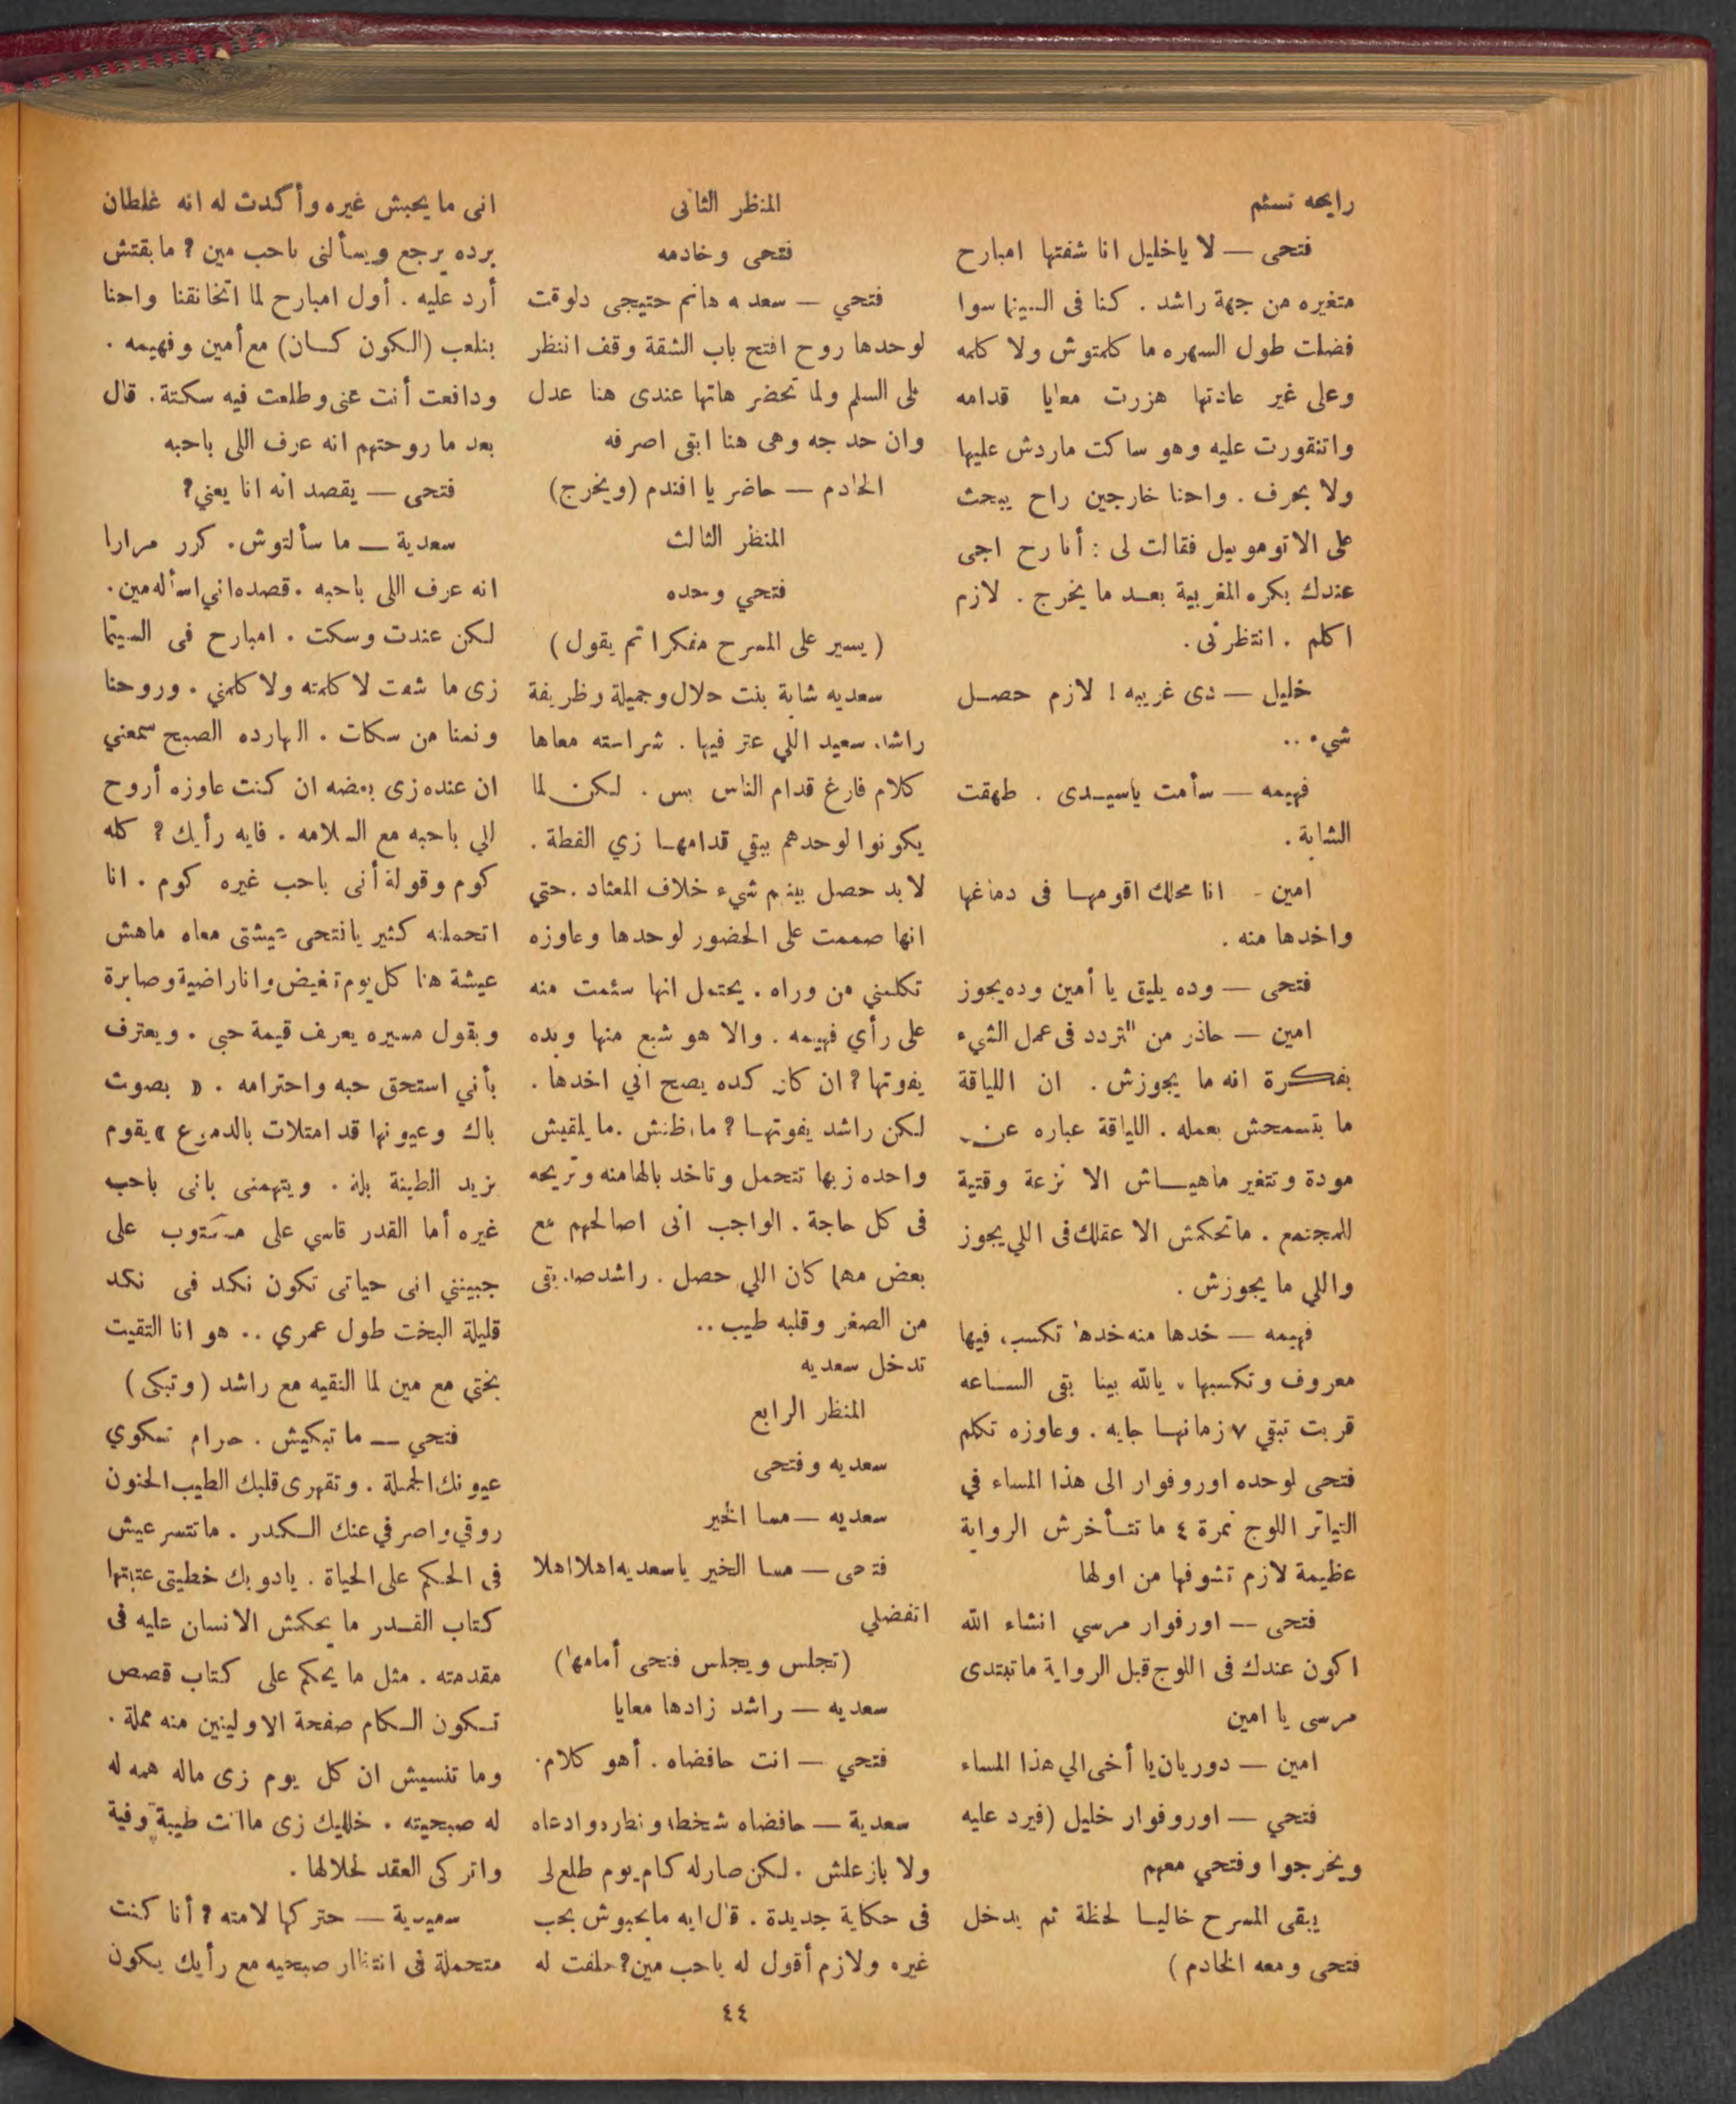 رايحه تسئم
فتحى — لا ياخليل انا شفتها امبارح
متغيره من جهة راشد . كنا فى السينما سوا
فضلت طول السهره ما كلمتوش ولا كلمه
وعلى غير عادتها هزرت معايا قدامه
واتنقورت عليه وهو ساكت ماردش عليها
ولا بحرف . واحنا خارجين راح يبحث
على الاتوموبيل فقالت لى : أنا رح اجى
عندك بكره المغربية بعد ما يخرج . لازم
اكلم . انتظرنى .
خليل — دى غريبه ! لازم حصل
شيء ..
فهيمه — سأمت ياسيدى . طهقت
الشابة .
امين - انا محلك اقومها فى دماغها
واخدها منه .
فتحى — وده يليق يا أمين وده يجوز
امين — حاذر من التردد فى عمل الشيء
بفكرة انه ما يجوزش . ان اللياقة
ما بتسمحش بعمله . اللياقة عباره عن
مودة وتتغير ماهياش الا نزعة وقتية
للمجتمع . ماتحكمش الا عقلك فى اللي يجوز
واللي ما يجوزش .
فهيمه — خدها منه خدها تكسب فيها
معروف وتكسبها . يالله بينا بقى الساعه
قربت تبقي ٧ زمانها جايه . وعاوزه تكلم
فتحى لوحده اوروفوار الى هذا المساء في
التياتر اللوج نمرة ٤ ما تتأخرش الرواية
عظيمة لازم تشوفها من اولها
فتحى — اورفوار مرسي انشاء الله
اكون عندك فى اللوج قبل الرواية ماتبتدى
مرسى يا امين
امين — دوريان يا أخى الي هذا المساء
فتحي — اوروفوار خليل (فيرد عليه
ويخرجوا وفتحي معهم
يبقى المسرح خاليا لحظة ثم يدخل
فتحى ومعه الخادم )
المنظر الثانى
فتحى وخادمه
فتحي — سعديه هانم حتيجى دلوقت
لوحدها روح افتح باب الشقة وقف انتظر
على السلم ولما تحضر هاتها عندى هنا عدل
وان حد جه وهى هنا ابقى اصرفه
الخادم — حاضر يا افندم (ويخرج)
المنظر الثالث
فتحي وحده
( يسير على المسرح مفكرا ثم يقول )
سعديه شابة بنت حلال وجميلة وظريفة
راشد سعيد اللي عتر فيها . شراسته معاها
كلام فارغ قدام الناس بس . لكن لما
يكونوا لوحدهم يبقي قدامها زي القطة .
لابد حصل بينهم شيء خلاف المعتاد . حتي
انها صممت على الحضور لوحدها وعاوزه
تكلمني من وراه . يحتمل انها سئمت منه
على رأي فهيمه . والا هو شبع منها وبده
يفوتها ? ان كان كده يصح اني اخدها .
لكن راشد يفوتها ? ما اظنش . ما يلقيش
واحده زيها تتحمل وتاخد بالها منه وتريحه
فى كل حاجة . الواجب انى اصالحهم مع
بعض مهما كان اللي حصل . راشد صديقى
من الصغر وقلبه طيب ..
تدخل سعديه
المنظر الرابع
سعديه وفتحى
سعديه — مسا الخير
فتحى — مسا الخير ياسعديه اهلا اهلا
اتفضلي
(تجلس ويجلس فتحى أمامها)
سعديه — راشد زادها معايا
فتحي — انت حافضاه . أهو كلام .
سعدية — حافضاه شخطه ونطره وادعاه
ولا بازعلش . لكن صار له كام يوم طلع لى
فى حكاية جديدة . قال ايه مابحبوش بحب
غيره ولازم أقول له باحب مين ? حلفت له
انى ما يحبش غيره وأكدت له انه غلطان
برده يرجع ويسألنى باحب مين ? ما بقتش
أرد عليه . أول امبارح لما اتخانقنا واحنا
بنلعب (الكون كان) مع أمين وفهيمه .
ودافعت أنت عنى وطلعت فيه سكتة . قال
بعد ما روحتهم انه عرف اللى باحبه
فتحى — يقصد انه انا يعني ?
سعدية — ما سألتوش . كرر مرارا
انه عرف اللى باحبه . قصده اني اسأله مين .
لكن عندت وسكت . امبارح فى السينما
زى ما شفت لا كلمته ولا كلمني . وروحنا
ونمنا من سكات . النهارده الصبح سمعني
ان عنده زى بعضه ان كنت عاوزه أروح
الي باحبه مع السلامه . فايه رأيك ? كله
كوم وقولة أنى باحب غيره كوم . انا
اتحملته كثير يافتحى عيشتى معاه ماهش
عيشة هنا كل يوم تغيض وانا راضية وصابرة
وبقول مسيره يعرف قيمة حبى . ويعترف
بأني استحق حبه واحترامه . « بصوت
باك وعيونها قد امتلات بالدموع » يقوم
يزيد الطينة بلة . ويتهمنى بانى باحب
غيره أما القدر قاسي على مكتوب على
جبينني انى حياتى تكون نكد فى نكد
قليلة البخت طول عمري .. هو انا التقيت
بختي مع مين لما التقيه مع راشد (وتبكى)
فتحي — ما تبكيش . حرام تكوي
عيونك الجميلة . وتقهرى قلبك الطيب الحنون
روقي واصرفي عنك الكدر . ماتتسرعيش
فى الحكم على الحياة . يادوبك خطيتى عتبتها
كتاب القدر ما يحكمش الانسان عليه فى
مقدمته . مثل ما يحكم على كتاب قصص
تكون الكام صفحة الاولينين منه مملة .
وما تنسيش ان كل يوم زى ماله همه له
له صبحيته . خليك زى ما انت طيبة وفية
واتركى العقد لحلالها .
سعيدية — حتركها لامته ? أنا كنت
متحملة فى انتظار صبحيه مع رأيك يكون
٤٤